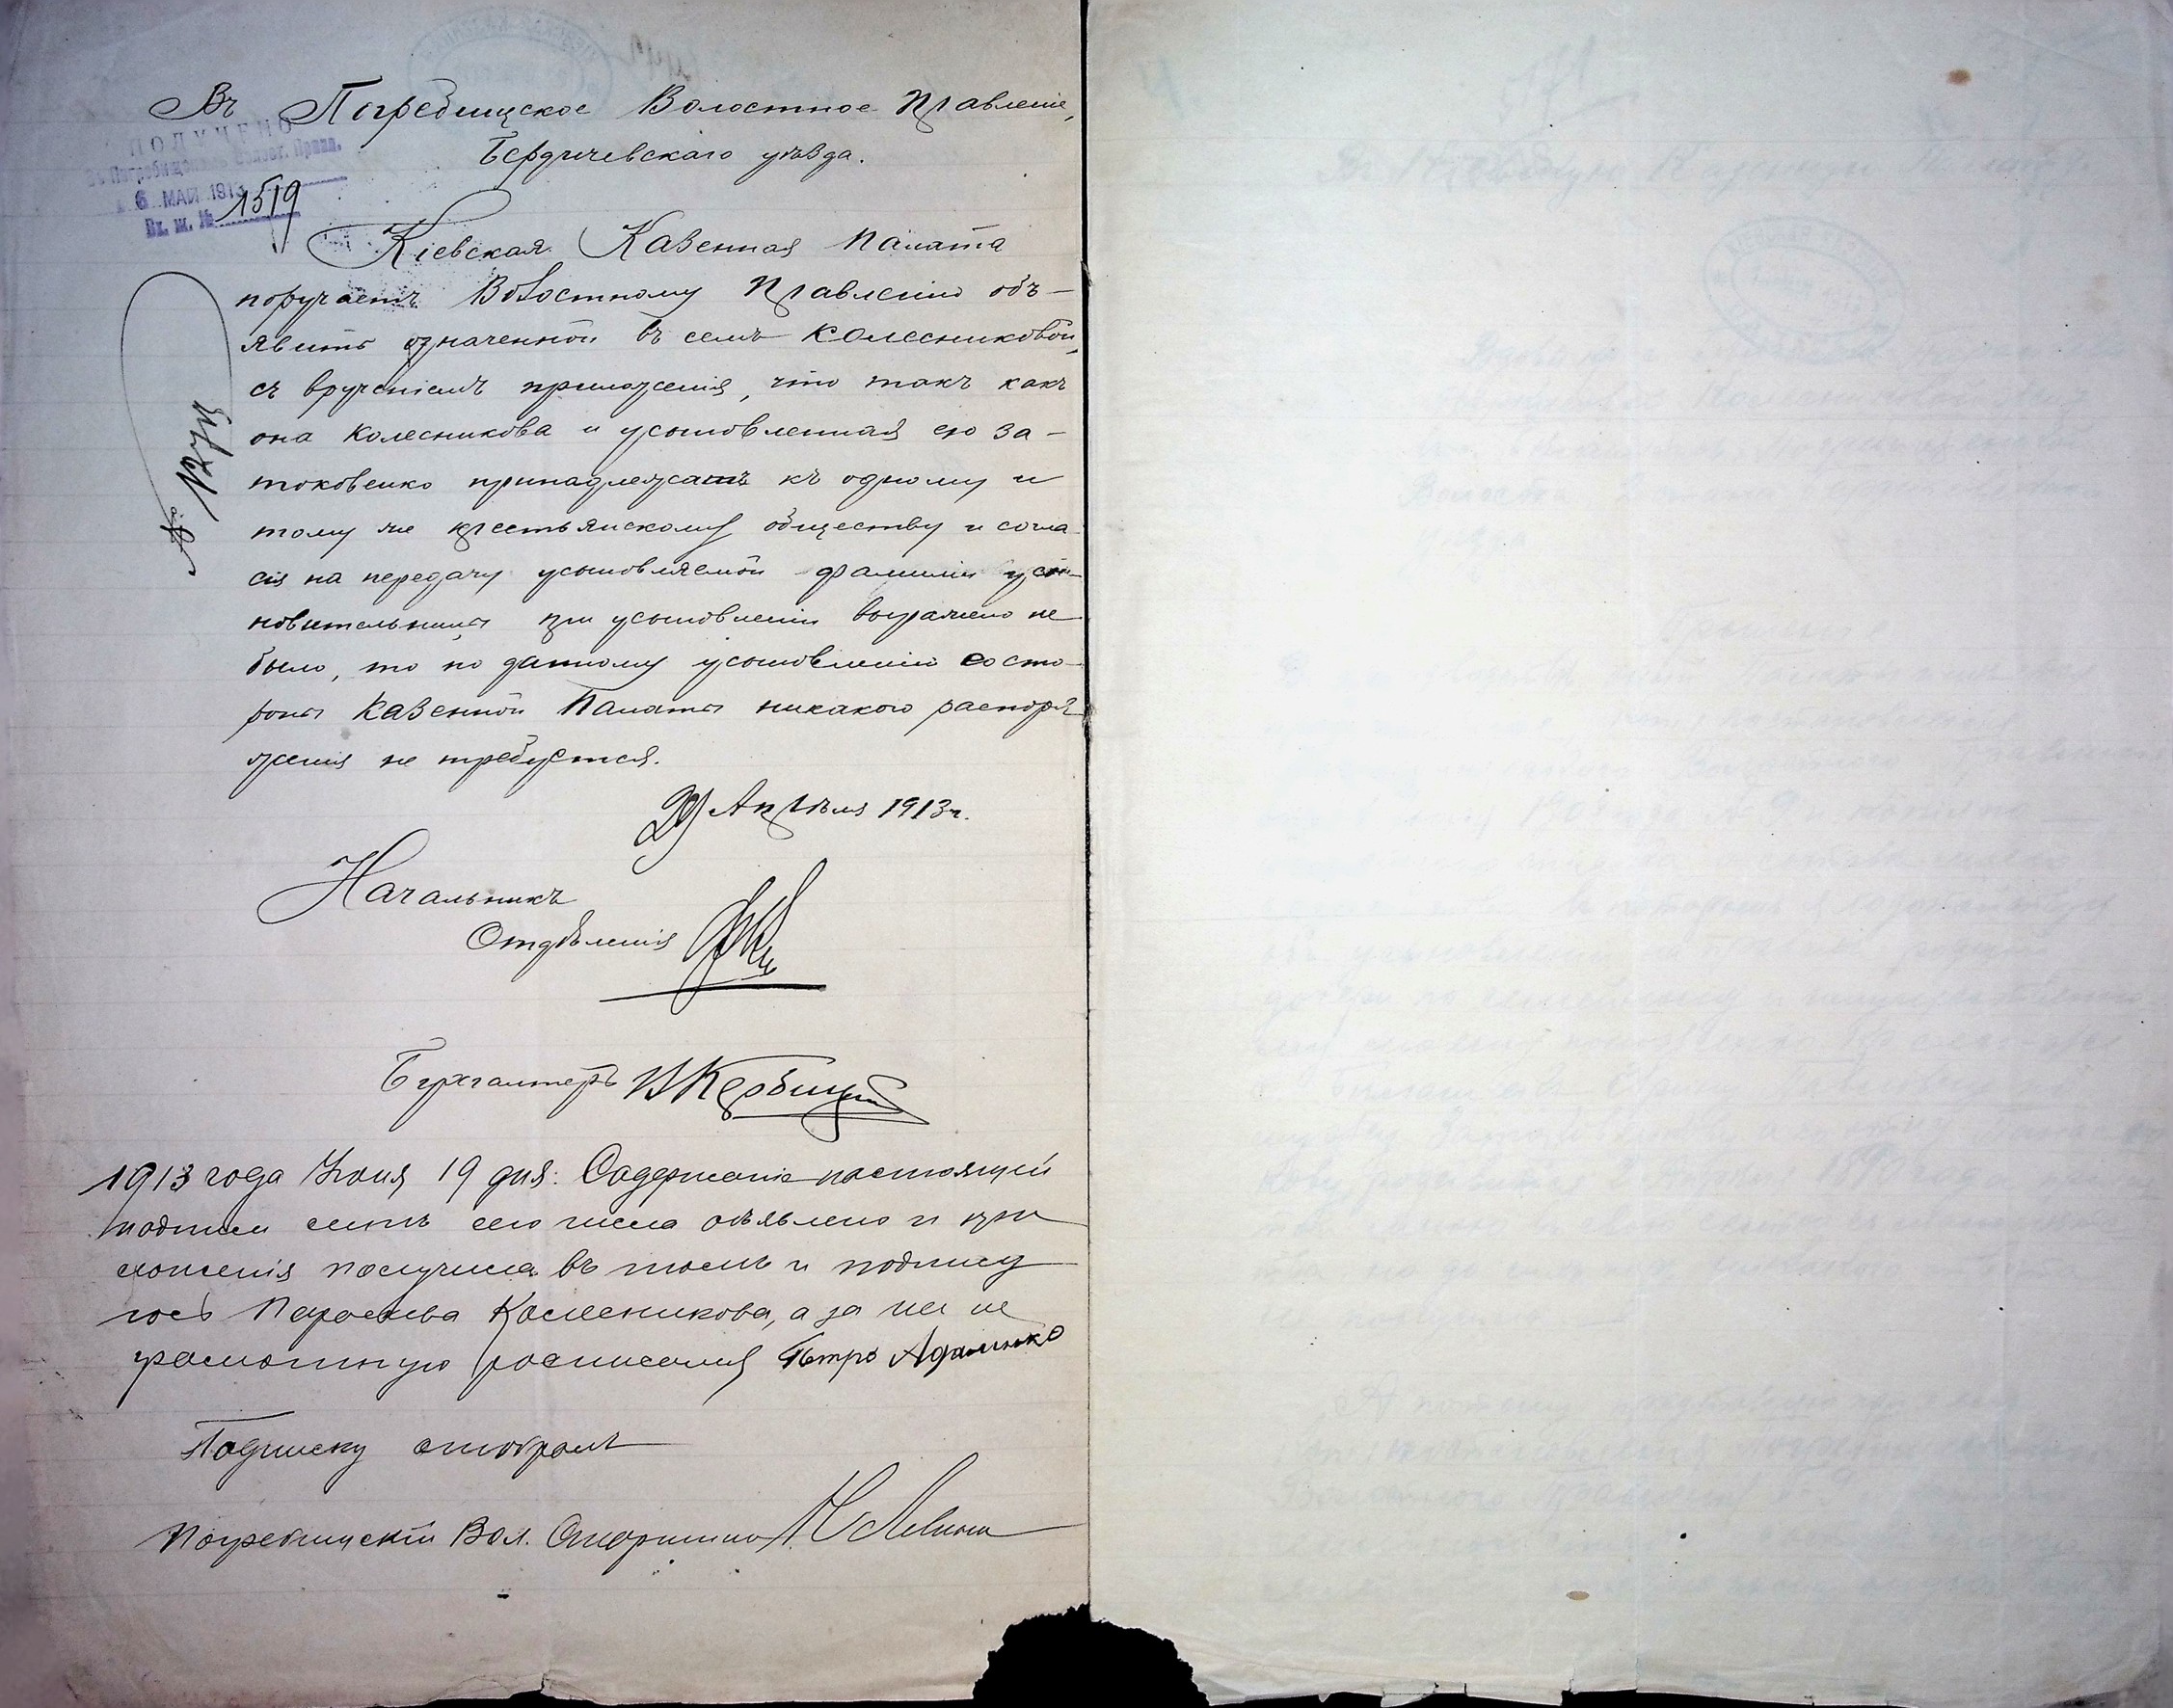 Въ Погребищское Волостное Правленіе,
Бердичевскаго уѣзда.
ПОЛУЧЕНО
6 МАЙ 1913
Вх. ж. № 1519
Кіевская Казенная Палата
поручаетъ Волостному Правленію объ-
явить означенной въ семъ Колесниковой,
съ врученіемъ приложенія, что такъ какъ
она Колесникова и усыновленная ею За-
токовенко принадлежатъ къ одному и
тому же крестьянскому обществу и согла
сія на передачу усыновляемой фамиліи усы-
новительницы при усыновленіи выражено не
было, то по данному усыновленію со сто-
роны Казенной Палаты никакого распоря
женія не требуется.
29 Апрѣля 1913 г.
Начальникъ
Отдѣленія
Бухгалтеръ
1913 года Іюня 19 дня. Содержаніе настоящей
надписи сего числа объявлено и при
ложенія получила въ томъ и подпису
юсь Параскева Колесникова, а за нея не
грамотную росписался Петро Адаменко
Подписку отобралъ
Погребищскій Вол. Старшина
№ 12718